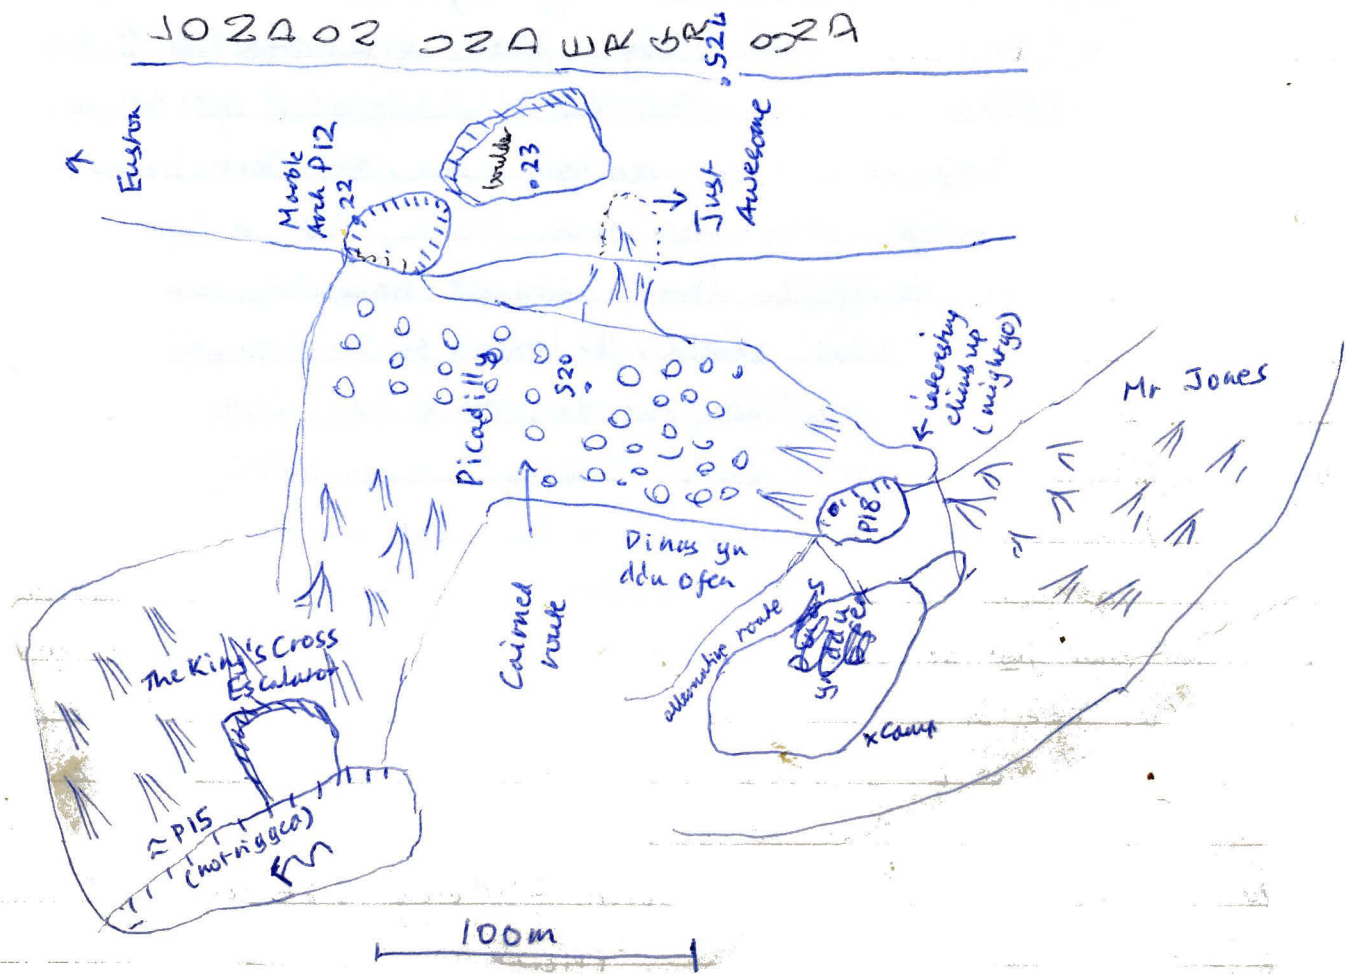 JOZA02 OZA ER GR OZA
.S24
↑ Euston
Marble
Arch P12
.22
boulder
.23
↓ Just
Awesome
Picadilly
S20
← interesting
climb up
(might go)
Mr Jones
P18
Cairned
route
Dinas yn
ddu Ofen
alternative route
x Camp
The King's Cross
Escalator
≈ P15
(not rigged)
100m